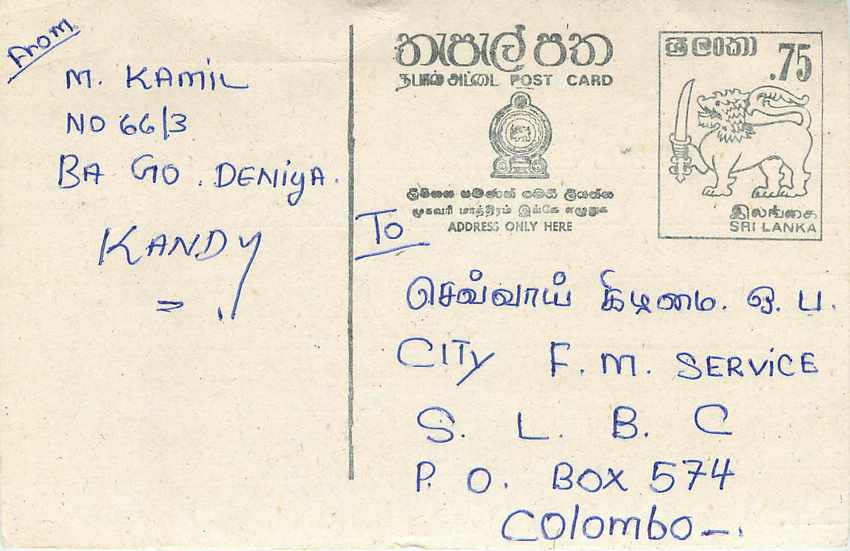 From
M. KAMIL
NO 66/3
BA GO. DENIYA.
KANDY
තැපැල් පත
தபால் அட்டை POST CARD
ලිපිනය පමණක් මෙහි ලියන්න
முகவரி மாத்திரம் இங்கே எழுதுக
ADDRESS ONLY HERE
ශ්‍රී ලංකා
.75
இலங்கை
SRI LANKA
To
செவ்வாய் கிடிமை. ஒ. ப.
CITY F. M. SERVICE
S. L. B. C
P. O. BOX 574
Colombo